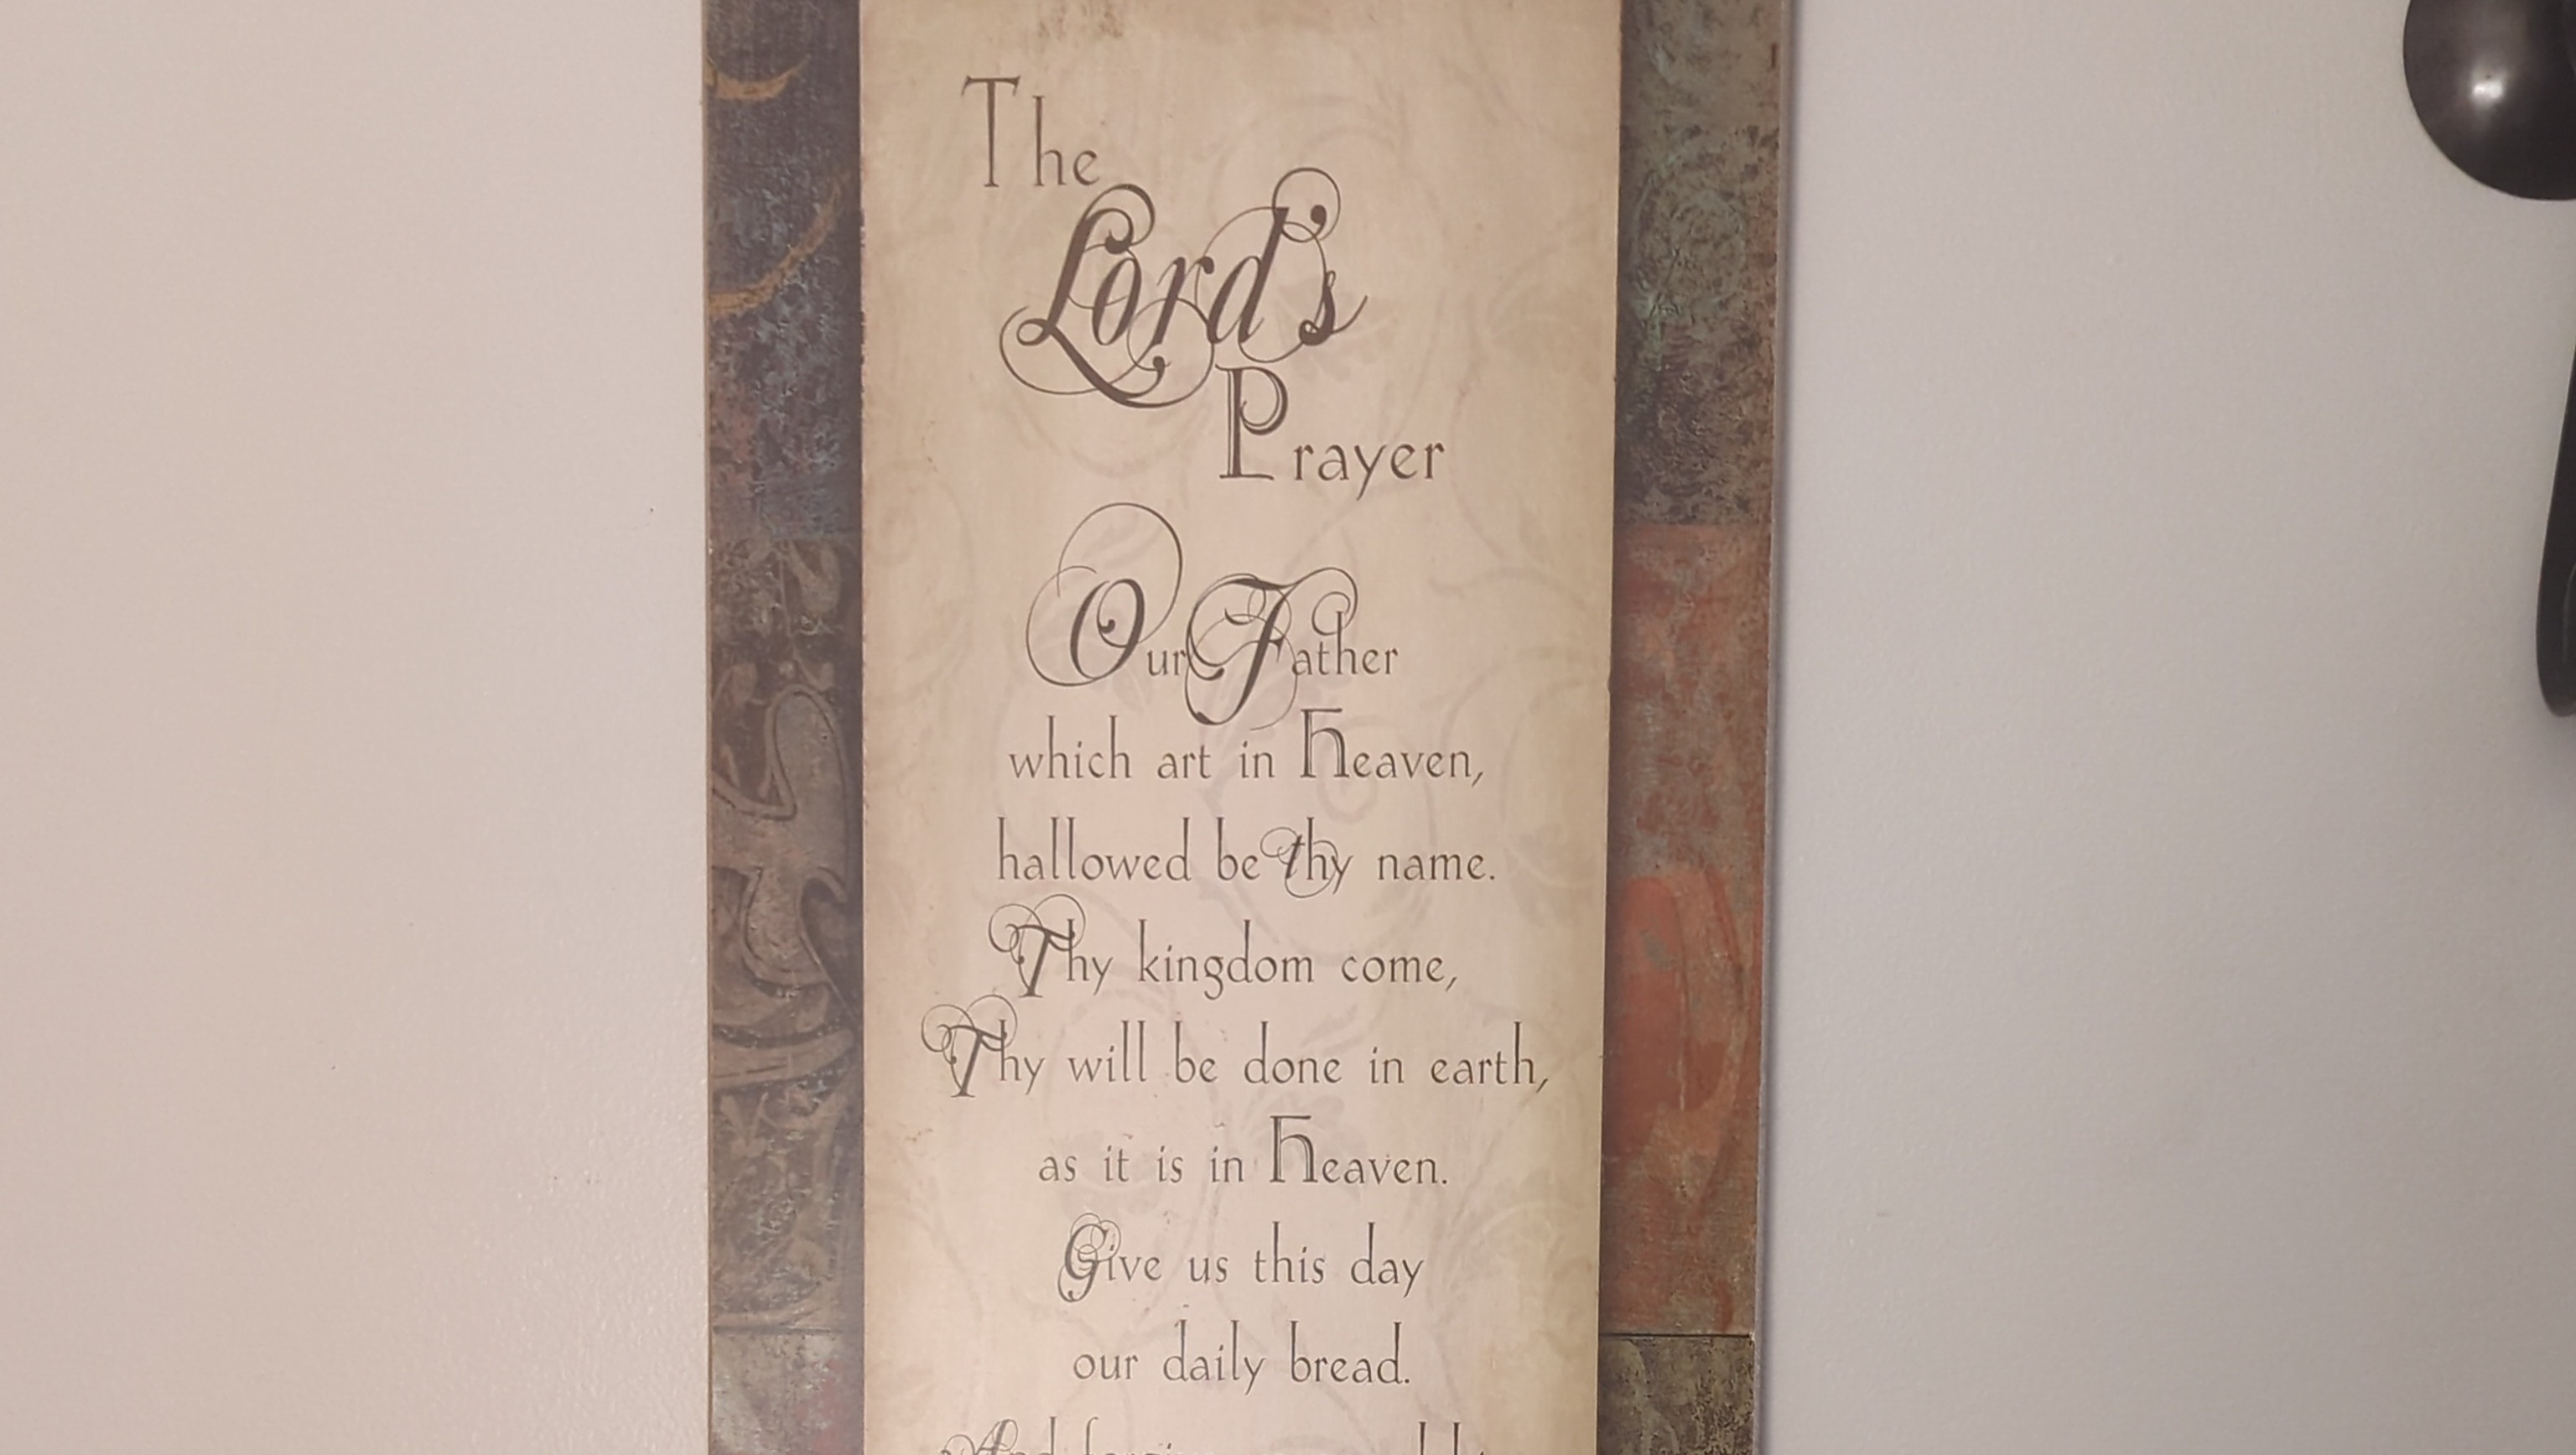 The
Lord's
Prayer
Our Father
which art in Heaven,
hallowed be thy name.
Thy kingdom come,
Thy will be done in earth,
as it is in Heaven.
Give us this day
our daily bread.
And